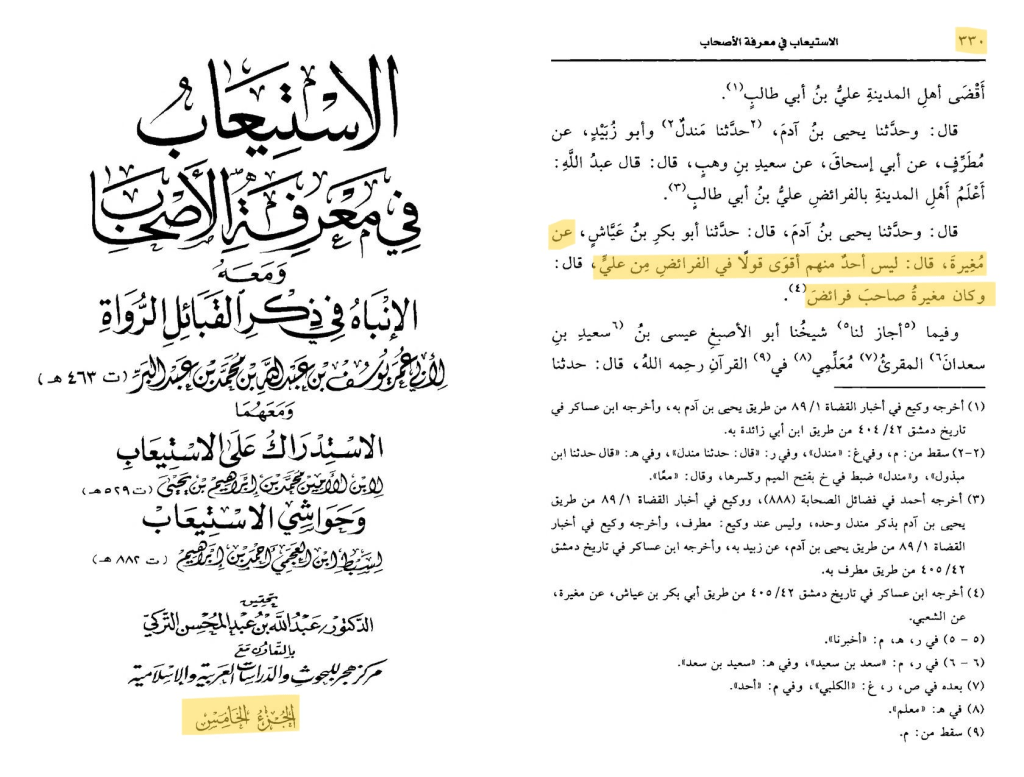 الاستيعاب
في معرفة الأصحاب
ومعه
الإنباه في ذكر القبائل الرواة
لأبي عمر يوسف بن عبد الله بن محمد بن عبد البر (ت ٤٦٣ هـ)
ومعهما
الاستدراك على الاستيعاب
لابن الأمين محمد بن إبراهيم بن يحيى (ت ٥٢٩ هـ)
وحواشي الاستيعاب
لسبط ابن العجمي أحمد بن إبراهيم (ت ٨٨٢ هـ)
تحقيق
الدكتور/ عبد الله بن عبد المحسن التركي
بالتعاون مع
مركز هجر للبحوث والدراسات العربية والإسلامية
الجزء الخامس
٣٣٠ الاستيعاب في معرفة الأصحاب
أَقْضَى أهلِ المدينةِ عليُّ بنُ أبي طالبٍ(١).
قال: وحدَّثنا يحيى بنُ آدمَ، (٢حدَّثنا مَندلٌ٢) وأبو زُبَيْدٍ، عن
مُطَرِّفٍ، عن أبي إسحاقَ، عن سعيدِ بنِ وهبٍ، قال: قال عبدُ اللَّهِ:
أَعْلَمُ أَهْلِ المدينةِ بالفرائضِ عليُّ بنُ أبي طالبٍ(٣).
قال: وحدَّثنا يحيى بنُ آدمَ، قال: حدَّثنا أبو بكرِ بنُ عَيَّاشٍ، عن
مُغِيرةَ، قال: ليس أحدٌ منهم أقوَى قولًا في الفرائضِ مِن عليٍّ، قال:
وكان مغيرةُ صاحبَ فرائضَ(٤).
وفيما (٥أجاز لنا٥) شيخُنا أبو الأصبغِ عيسى بنُ (٦سعيدِ بنِ
سعدانَ٦) المقرئُ(٧) مُعَلِّمِي(٨) في(٩) القرآنِ رحِمه اللهُ، قال: حدثنا
(١) أخرجه وكيع في أخبار القضاة ١/ ٨٩ من طريق يحيى بن آدم به، وأخرجه ابن عساكر في
تاريخ دمشق ٤٢/ ٤٠٤ من طريق ابن أبي زائدة به.
(٢-٢) سقط من: م، وفي غ: «مندل»، وفي ر: «قال: حدثنا مندل»، وفي هـ: «قال حدثنا ابن
مبذول»، و«مندل» ضبط في خ بفتح الميم وكسرها، وقال: «معًا».
(٣) أخرجه أحمد في فضائل الصحابة (٨٨٨)، ووكيع في أخبار القضاة ١/ ٨٩ من طريق
يحيى بن آدم بذكر مندل وحده، وليس عند وكيع: مطرف، وأخرجه وكيع في أخبار
القضاة ١/ ٨٩ من طريق يحيى بن آدم، عن زبيد به، وأخرجه ابن عساكر في تاريخ دمشق
٤٢/ ٤٠٥ من طريق مطرف به.
(٤) أخرجه ابن عساكر في تاريخ دمشق ٤٢/ ٤٠٥ من طريق أبي بكر بن عياش، عن مغيرة،
عن الشعبي.
(٥ - ٥) في ر، هـ، م: «أخبرنا».
(٦ - ٦) في ر، م: «سعد بن سعيد»، وفي هـ: «سعيد بن سعد».
(٧) بعده في ص، ر، غ: «الكلبي»، وفي م: «أحد».
(٨) في هـ: «معلم».
(٩) سقط من: م.